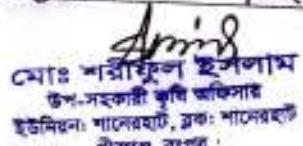 মোঃ শরীফুল ইসলাম
উপ-সহকারী কৃষি অফিসার
ইউনিয়ন: পানেরহাট, ব্লক: পানেরহাট